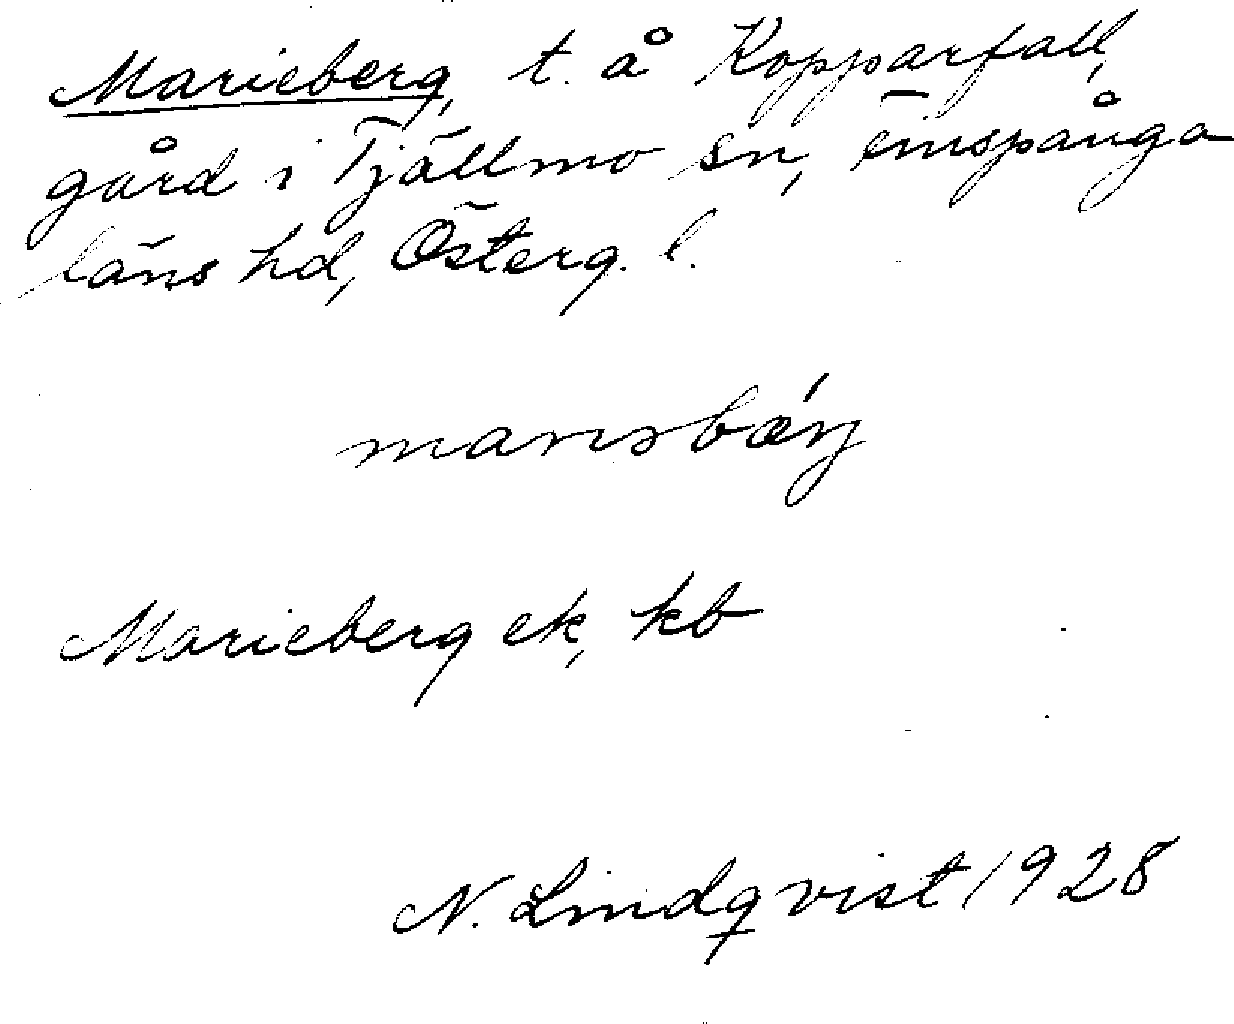 Marieberg, t. å Kopparfall,
gård i Tjällmo sn, Finspånga
läns hd, Österg. l.
Marieberg ek, kb
N. Lindqvist 1928